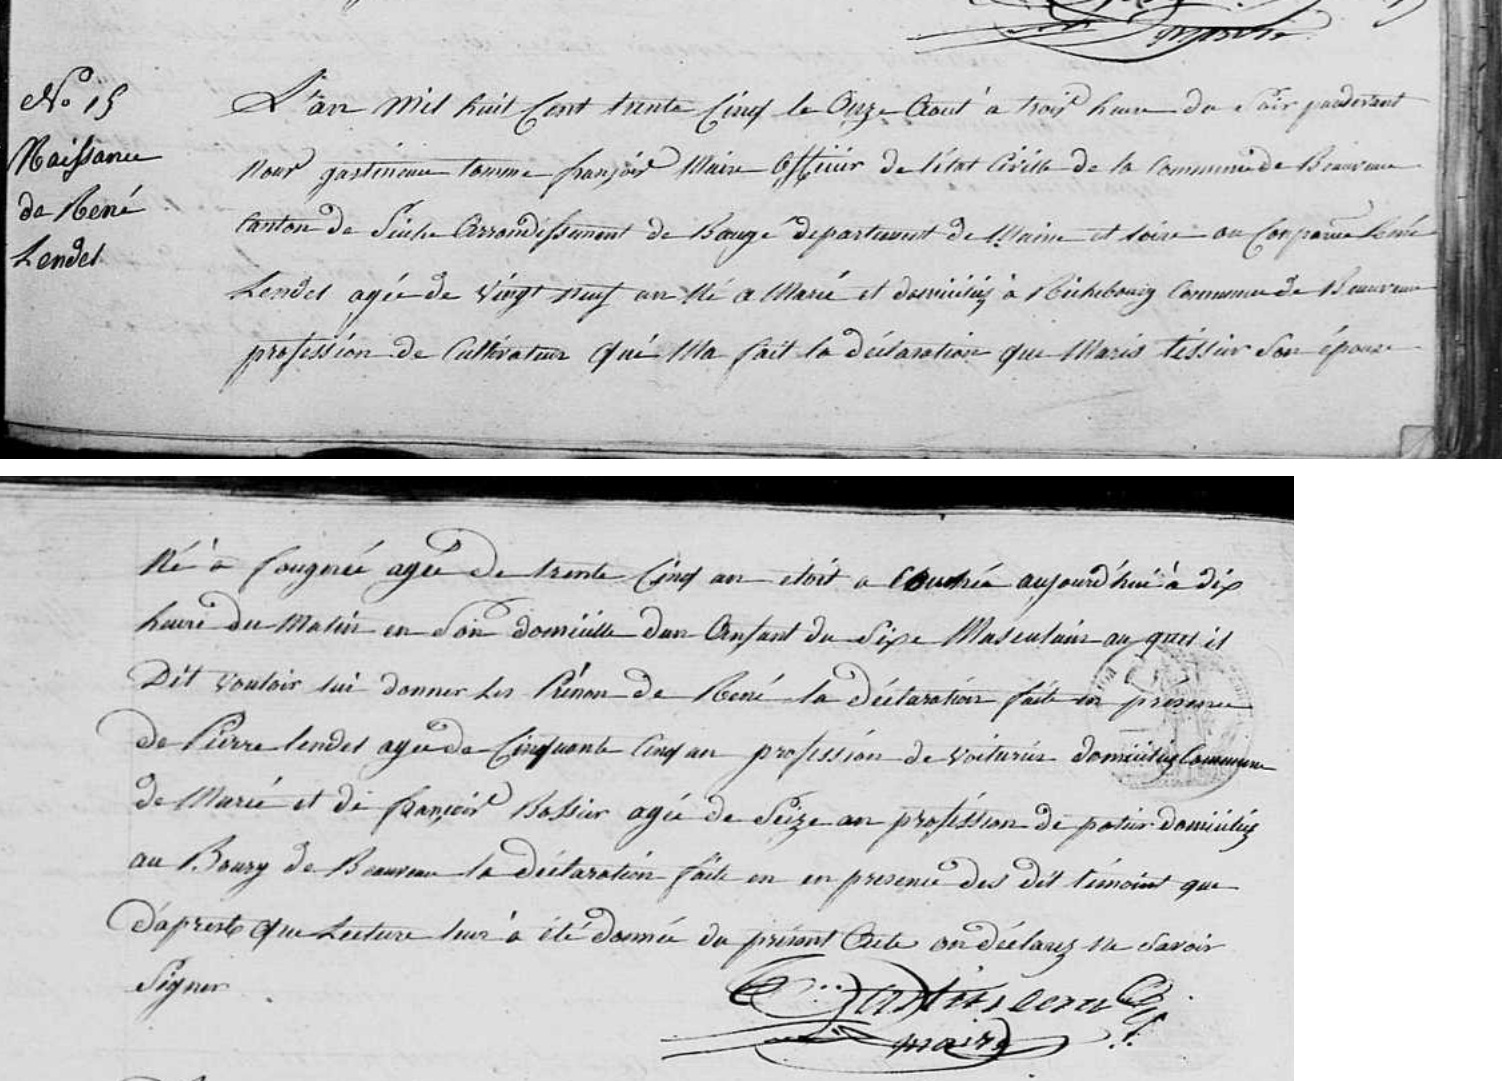 maire
No 15
Naissance
de René
Lendel
L'an mil huit Cent trente Cinq le Onze Aout a trois heure du Soir pardevant
nous gastineau tomme françois Maire Officiér de l'état Civille de la Commune de Beauveau
Canton de Seiche Arrondissement de Baugé departement de Maine et loire au Comparue Réné
Lendel agée de vingt neuf an Né a Marcé et domiciliéz à Richebourg Commune de Beauveau
profession de Cultivateur qui Ma fait la déclaration que Marie tessier son épouse
Né à fougeré agée de trente Cinq an etoit acouchée aujourd'hui à dix
heure du Matin en Son domicille dun Enfant du Sexe Masculain au quel il
Dit vouloir lui donner les Prénon de René la déclaration faite en presence
de Pierre lendel agée de Cinquante Cinq an profession de voiturier domiciliéz Commune
de Marcé et de françois Bossier agée de Seize an profession de potier domiciliéz
au Bourg de Beauveau la déclaration faite en en presence des dit témoint que
d'aprest que Lecture leur à été donnée du présent Acte on déclarez ne Savoir
Signer
Gastineau
maire